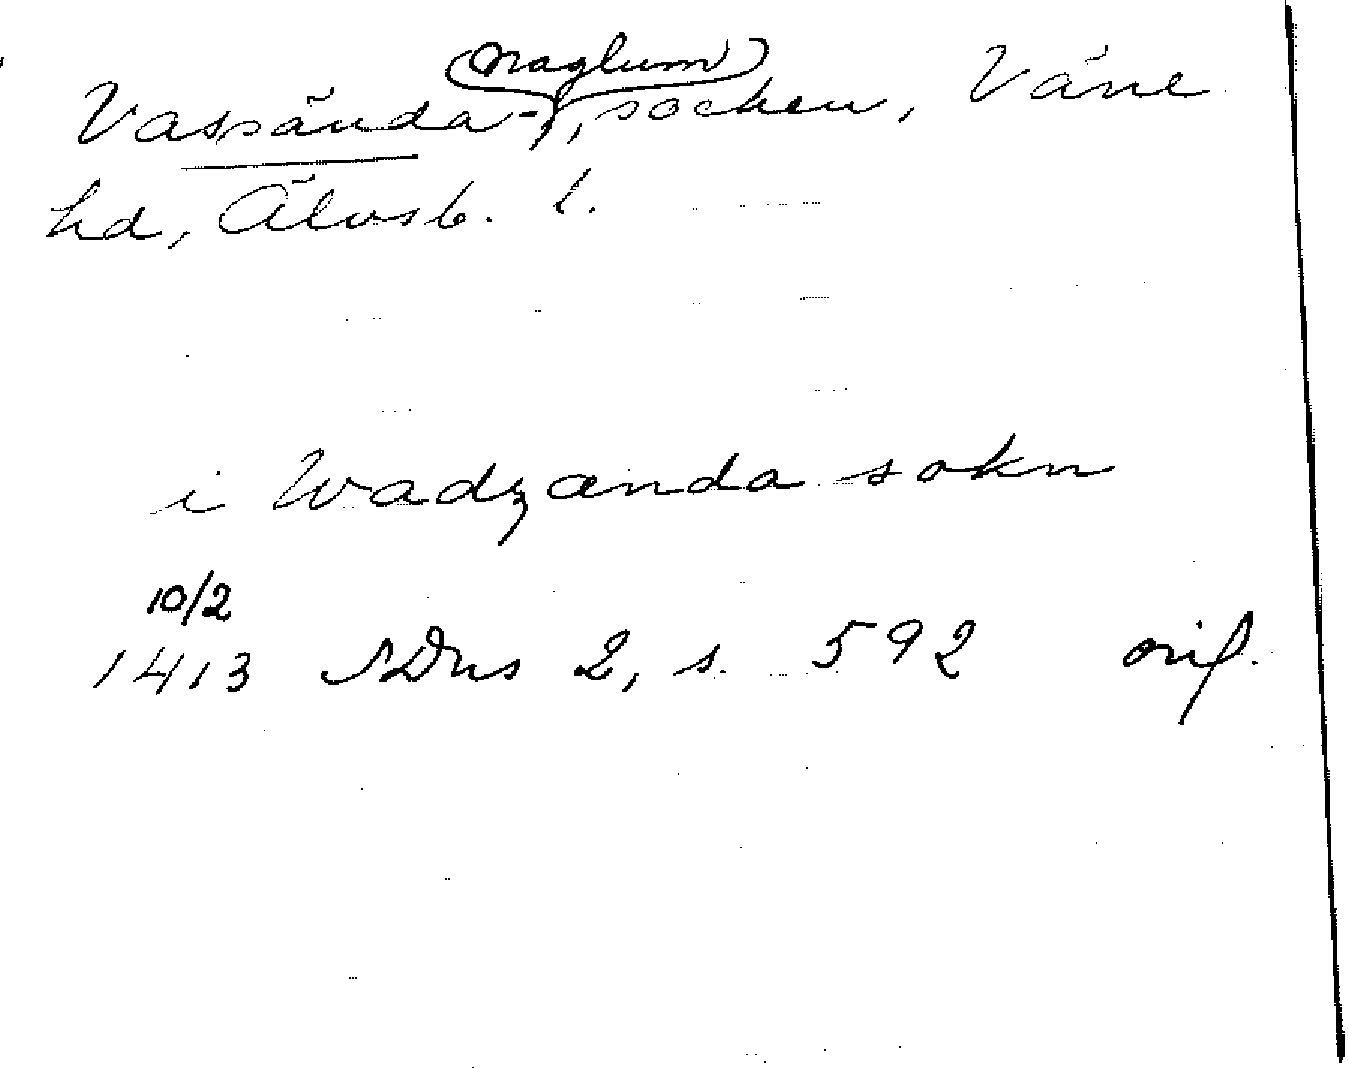 Vassända-Naglum, socken, Väne
hd, Älvsb. l.
i Wadzænda sokn
10/2
1413 SDns 2, s. 592 orig.